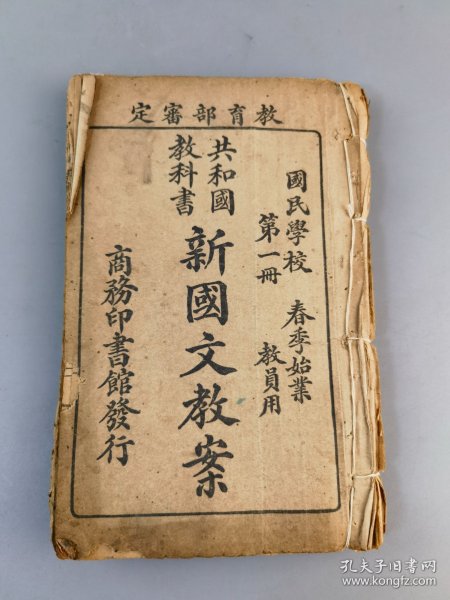 教育部審定
國民學校 春季始業
第一冊 教員用
共和國
教科書
新國文教案
商務印書館發行
孔夫子旧书网
www.kongfz.com